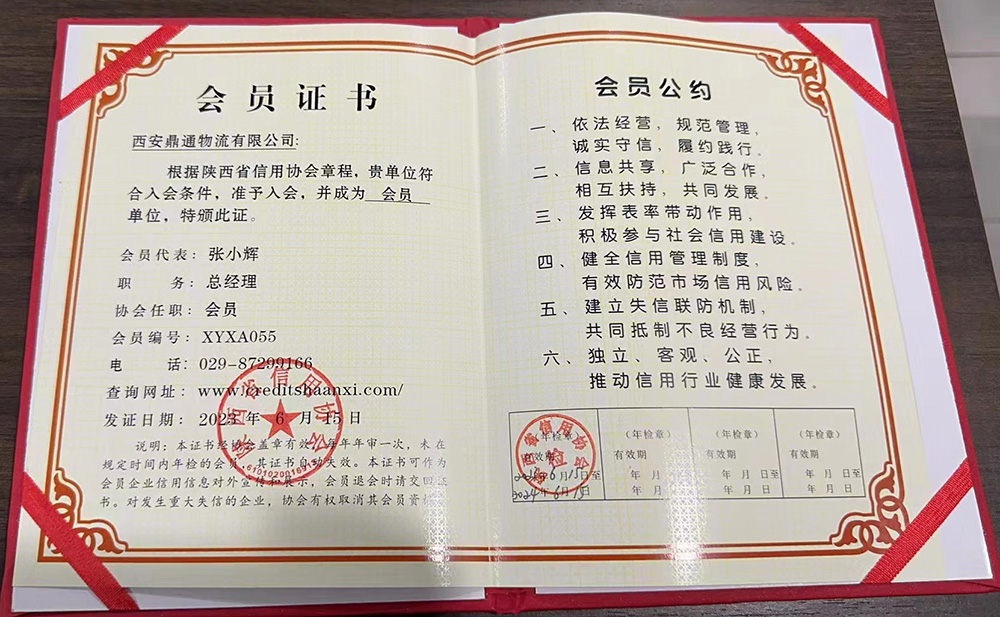 会员证书
西安鼎通物流有限公司:
根据陕西省信用协会章程,贵单位符
合入会条件,准予入会,并成为 会员
单位,特颁此证。
会员代表:张小辉
职 务:总经理
协会任职:会员
会员编号:XYXA055
电 话:029-87299166
查询网址:www.creditshaanxi.com/
发证日期:2023 年 6 月 15 日
说明:本证书经协会盖章有效,每年年审一次,未在
规定时间内年检的会员,其证书自动失效。本证书可作为
会员企业信用信息对外宣传和展示,会员退会时请交回证
书。对发生重大失信的企业,协会有权取消其会员资格。
陕西省信用协会
会员公约
一、依法经营,规范管理,
诚实守信,履约践行。
二、信息共享,广泛合作,
相互扶持,共同发展。
三、发挥表率带动作用,
积极参与社会信用建设。
四、健全信用管理制度,
有效防范市场信用风险。
五、建立失信联防机制,
共同抵制不良经营行为。
六、独立、客观、公正,
推动信用行业健康发展。
(年检章) (年检章) (年检章) (年检章)
有效期 有效期 有效期 有效期
2023年6月15日至 年 月 日至 年 月 日至 年 月 日至
2024年6月15日 年 月 日 年 月 日 年 月 日
陕西省信用协会
年检